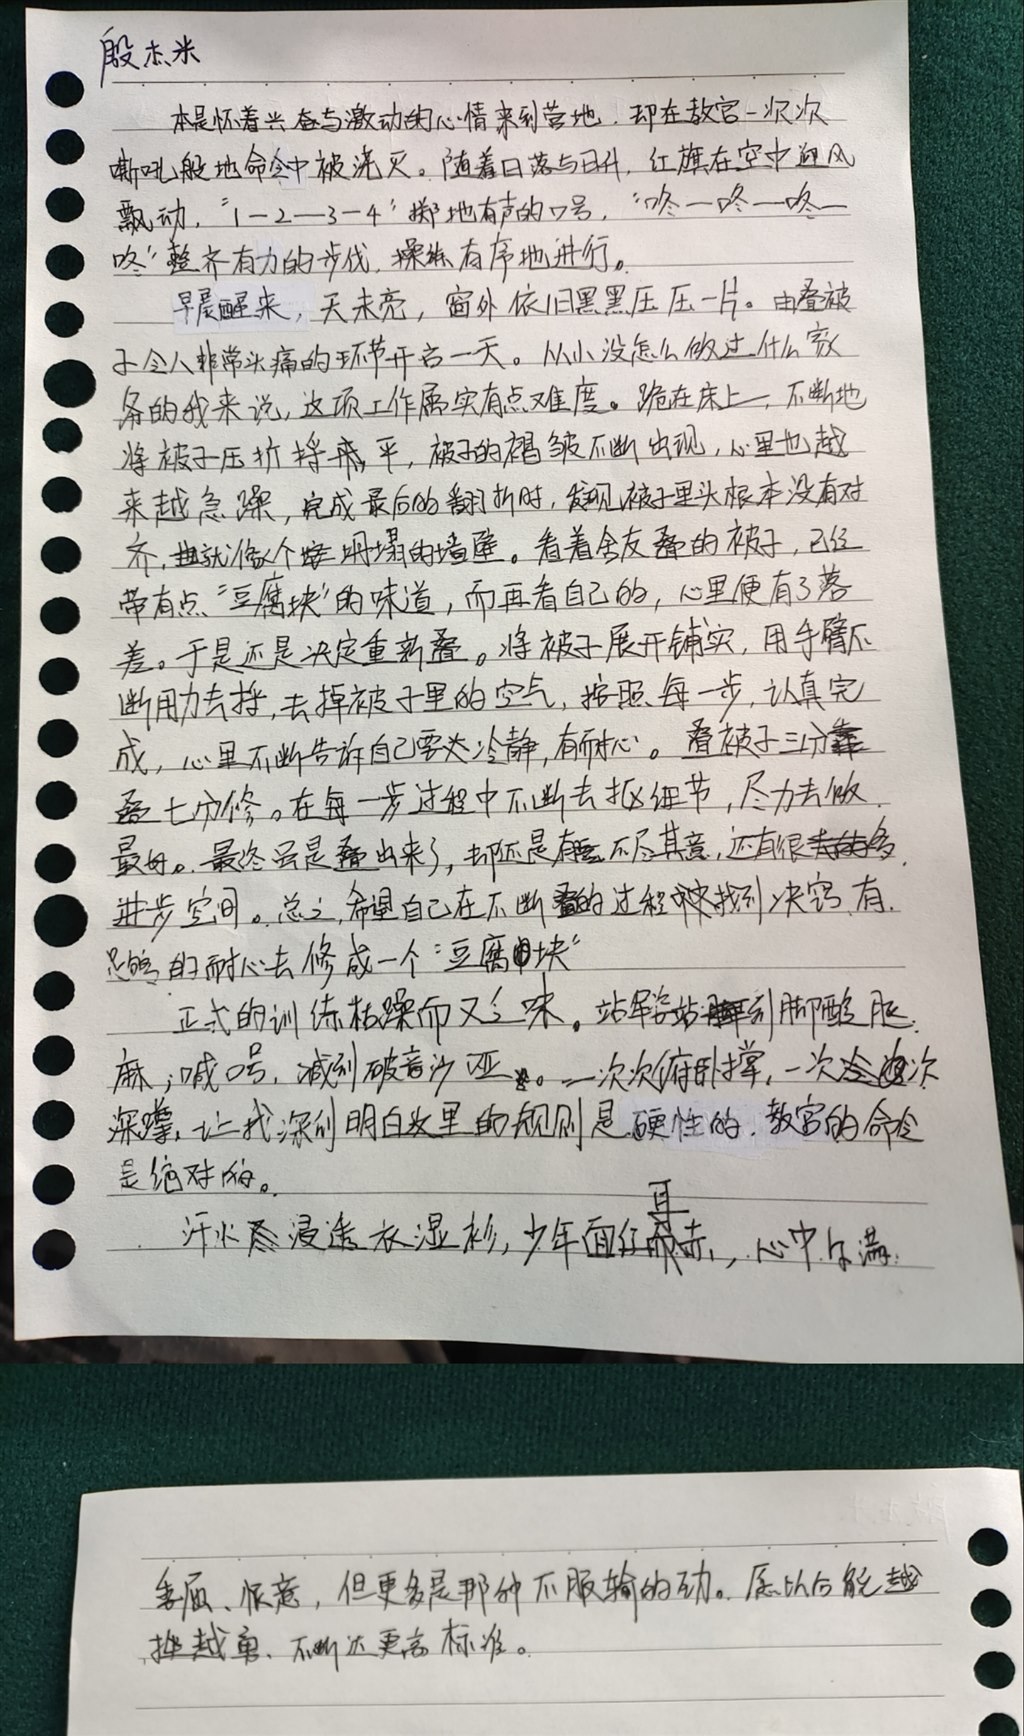 殷杰米
本是怀着兴奋与激动的心情来到营地，却在教官一次次
嘶吼般地命令中被浇灭。随着日落与日升，红旗在空中迎风
飘动，“1—2—3—4”掷地有声的口号，“咚—咚—咚—
咚”整齐有力的步伐，操练有序地进行。
早晨醒来，天未亮，窗外依旧黑黑压压一片。由叠被
子令人非常头痛的环节开启一天。从小没怎么做过什么家
务的我来说，这项工作属实有点难度。跪在床上，不断地
将被子压折捋平，被子的褶皱不断出现，心里也越
来越急躁，完成最后的翻折时，发现被子里头根本没有对
齐，就像个坍塌的墙壁。看着舍友叠的被子，已经
带有点“豆腐块”的味道，而再看自己的，心里便有了落
差。于是还是决定重新叠。将被子展开铺实，用手臂不
断用力去捋，去掉被子里的空气，按照每一步，认真完
成，心里不断告诉自己要冷静，有耐心。叠被子三分靠
叠七分修。在每一步过程中不断去抠细节，尽力去做
最好。最终虽是叠出来了，却还是有些不尽其意，还有很多
进步空间。总之，希望自己在不断叠的过程中找到诀窍，有
足够的耐心去修成一个“豆腐块”
正式的训练枯躁而又乏味。站军姿站到脚酸腿
麻，喊口号，喊到破音沙哑。一次次俯卧撑，一次次
深蹲，让我深刻明白这里的规则是硬性的，教官的命令
是绝对的。
汗水浸透衣湿衫，少年面红耳赤，心中尽满
委屈、恨意，但更多是那种不服输的劲。愿以后能越
挫越勇，不断达更高标准。